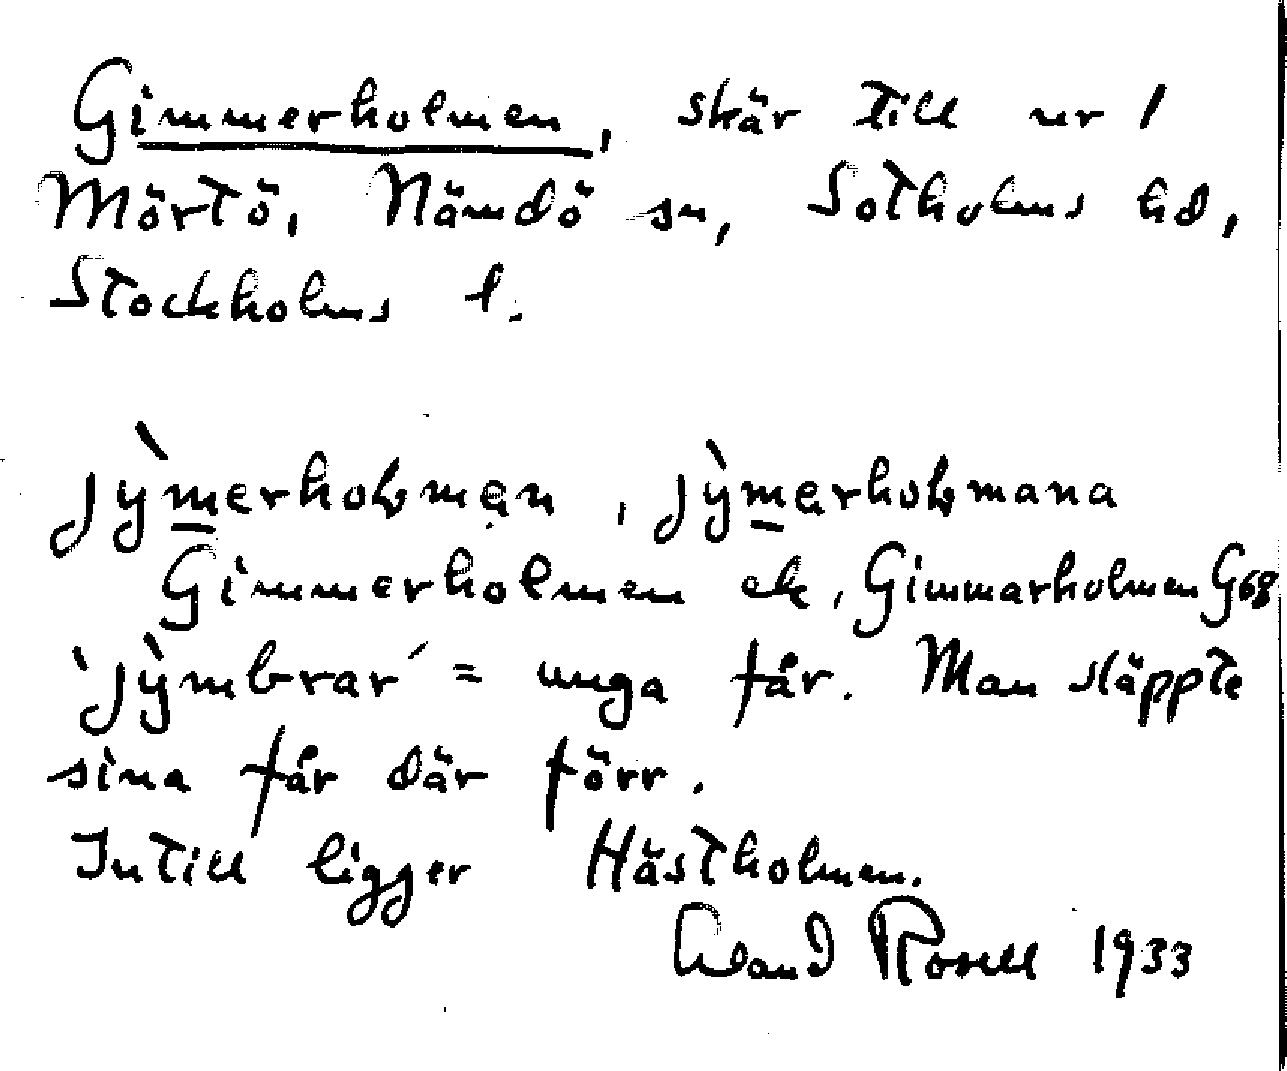 Gimmerholmen, skär till nr 1
Mörtö, Nämdö sn, Sotholms hd,
Stockholms l.
jỳmerholmen, jỳmarholmana
Gimmerholmen ek, Gimmarholmen G68
`jỳmbrar´ = unga får. Man släppte
sina får där förr.
Intill ligger Hästholmen.
Rosell 1933